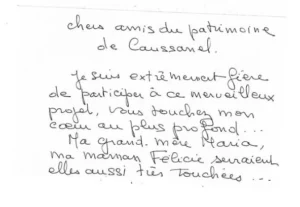 chers amis du patrimoine
de Caussanel.
Je suis extrêmement fière
de participer à ce merveilleux
projet, vous touchez mon
cœur au plus profond...
Ma grand. mère Maria,
ma maman Félicie seraient
elles aussi très touchées...